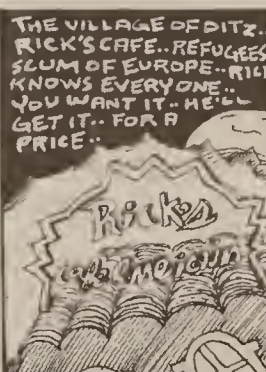 THE VILLAGE OF DITZ..
RICK'S CAFE.. REFUGEES
SCUM OF EUROPE.. RICK
KNOWS EVERYONE..
YOU WANT IT.. HE'LL
GET IT.. FOR A
PRICE..
Rick's